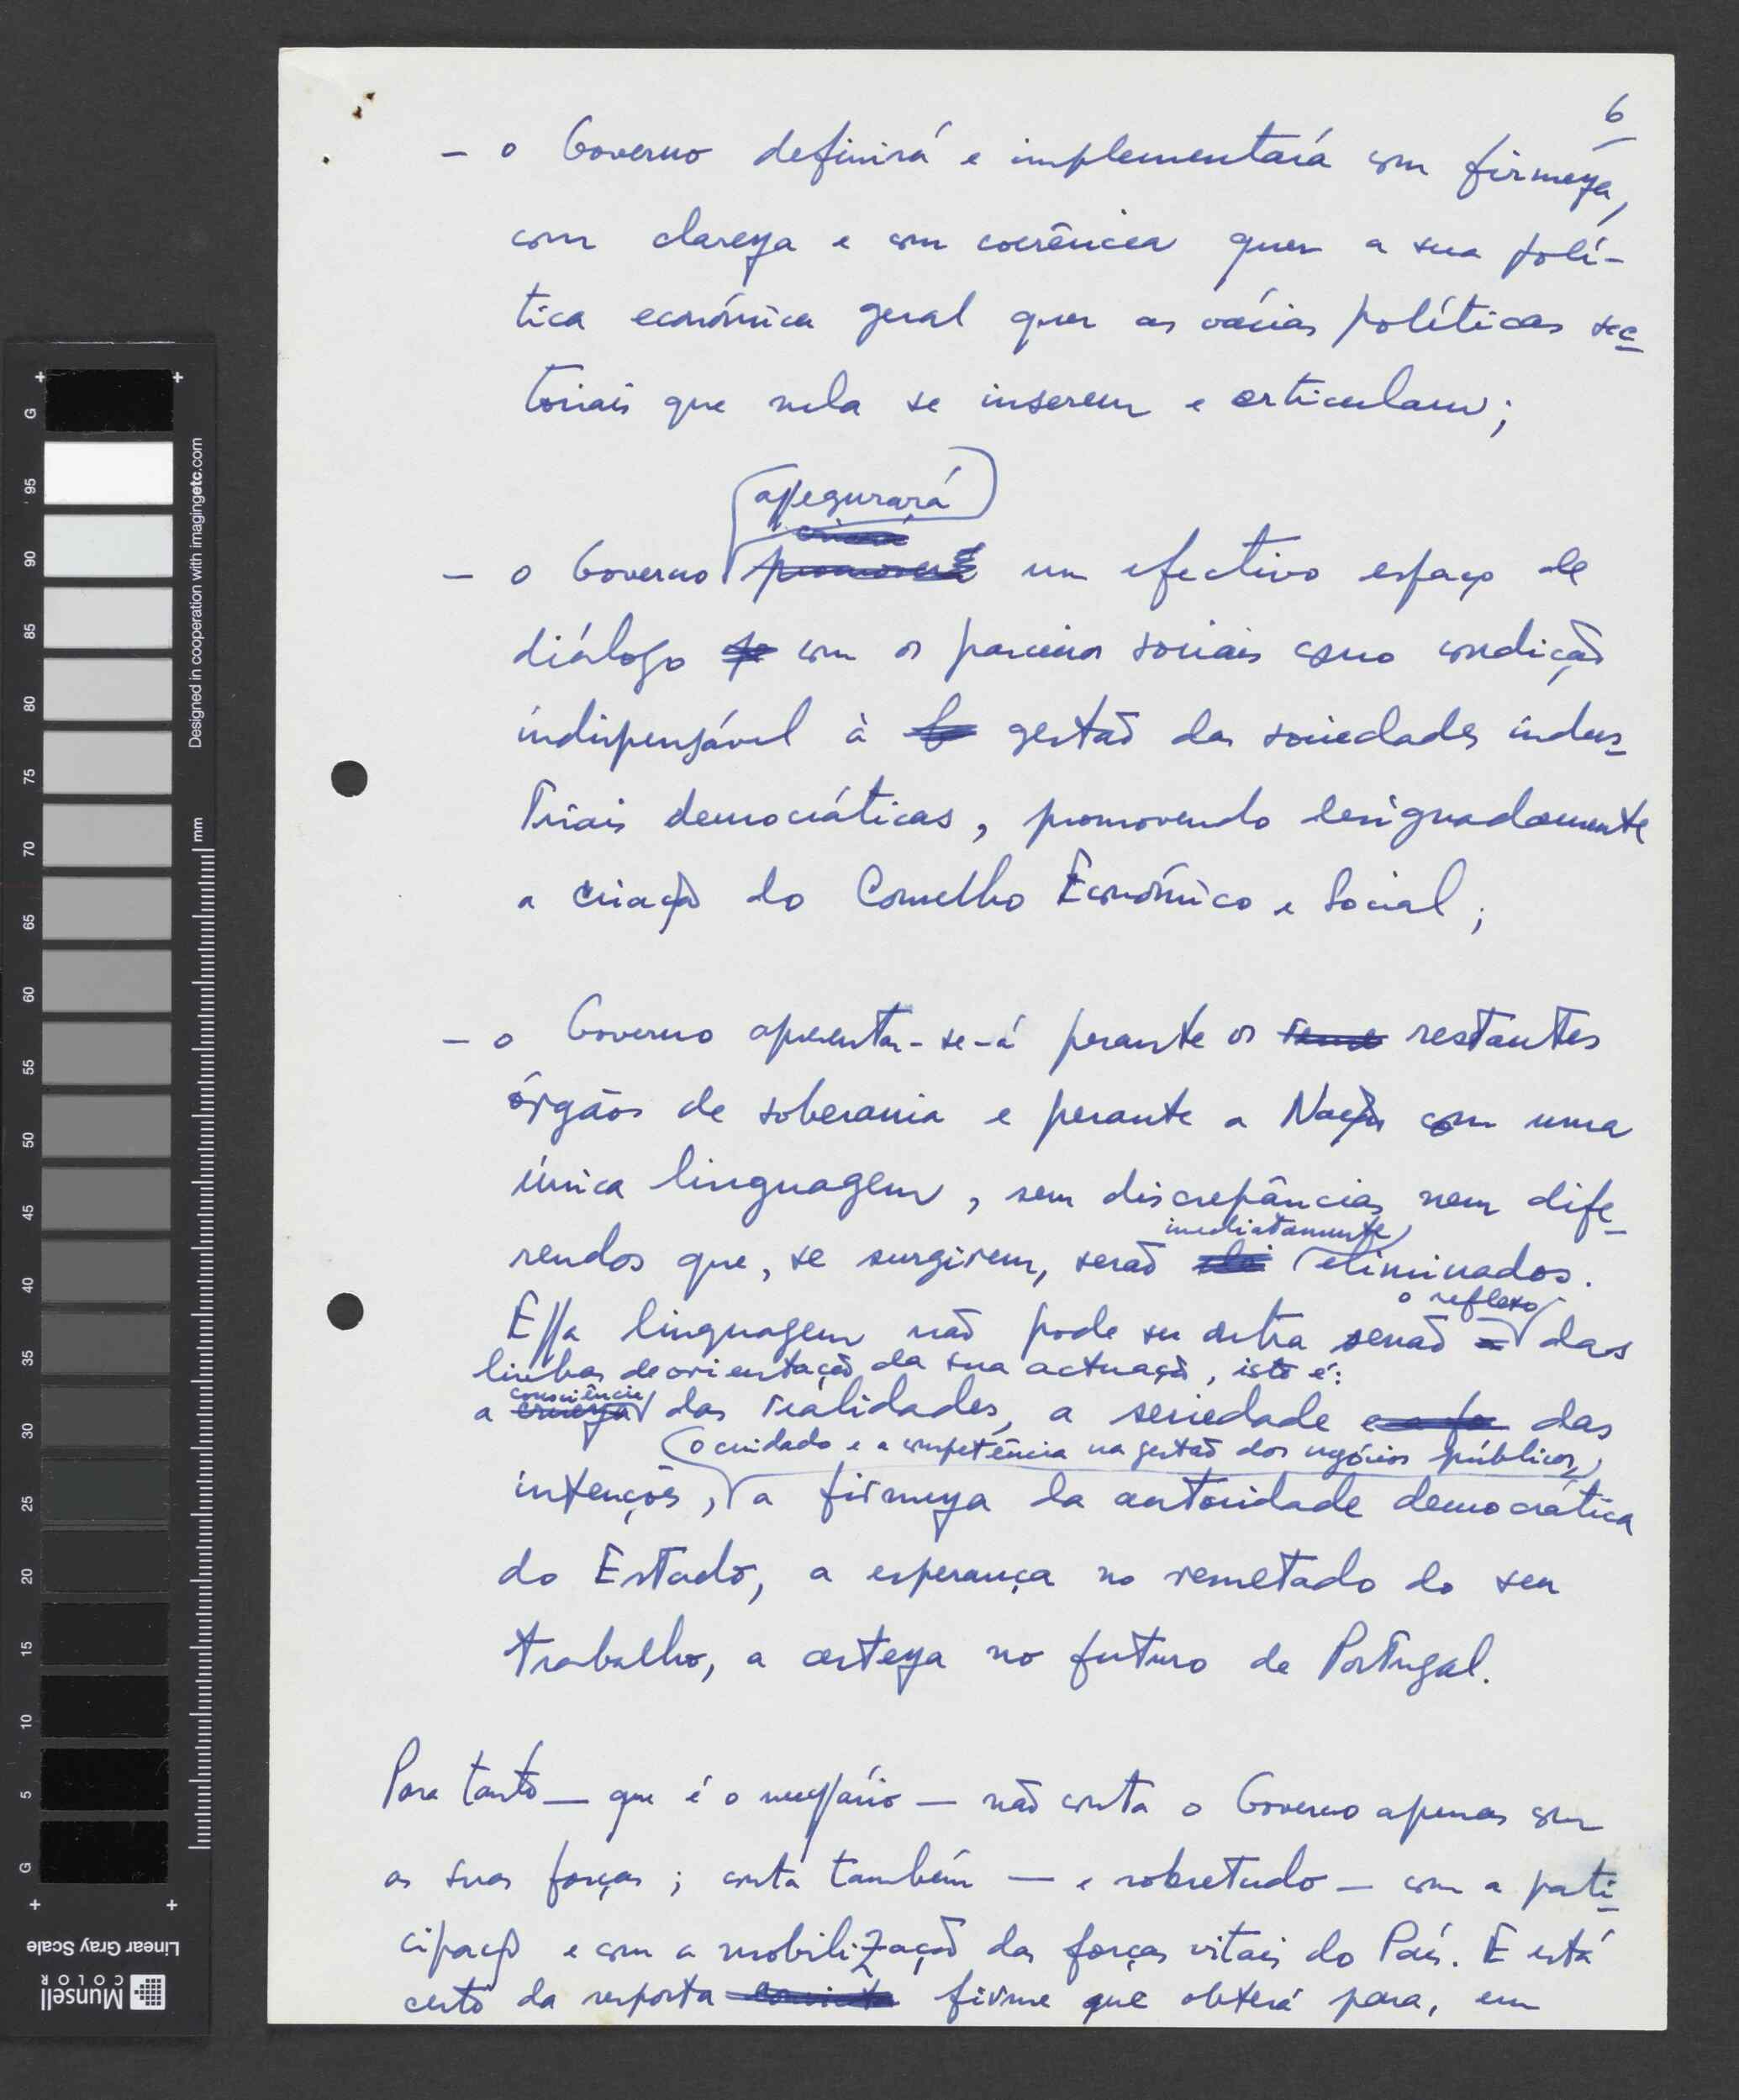 6
- o Governo definirá e implementará com firmeza,
com clareza e com coerência quer a sua polí-
tica económica geral quer as várias políticas sec-
toriais que nela se inserem e articulam;
assegurará
criará
- o Governo promoverá um efectivo espaço de
diálogo com os parceiros sociais como condição
indispensável à gestão das sociedades indus-
triais democráticas, promovendo designadamente
a criação do Conselho Económico e Social;
- o Governo apresentar-se-á perante os restantes
órgãos de soberania e perante a Nação com uma
única linguagem, sem discrepâncias nem dife-
imediatamente
rendos que, se surgirem, serão eliminados.
o reflexo
Essa linguagem não pode ser outra senão das
linhas de orientação da sua actuação, isto é:
consciência
a crueza das realidades, a seriedade das
o cuidado e a competência na gestão dos negócios públicos,
intenções, a firmeza da autoridade democrática
do Estado, a esperança no resultado do seu
trabalho, a certeza no futuro de Portugal.
Para tanto - que é o necessário - não conta o Governo apenas com
as suas forças; conta também - e sobretudo - com a parti-
cipação e com a mobilização das forças vitais do País. E está
certo da resposta convicta firme que obterá para, em
G 95 90 85 80 75 70 65 60 55 50 45 40 35 30 25 20 15 10 5 G
mm
Designed in cooperation with imagingetc.com
Linear Gray Scale
Munsell
COLOR